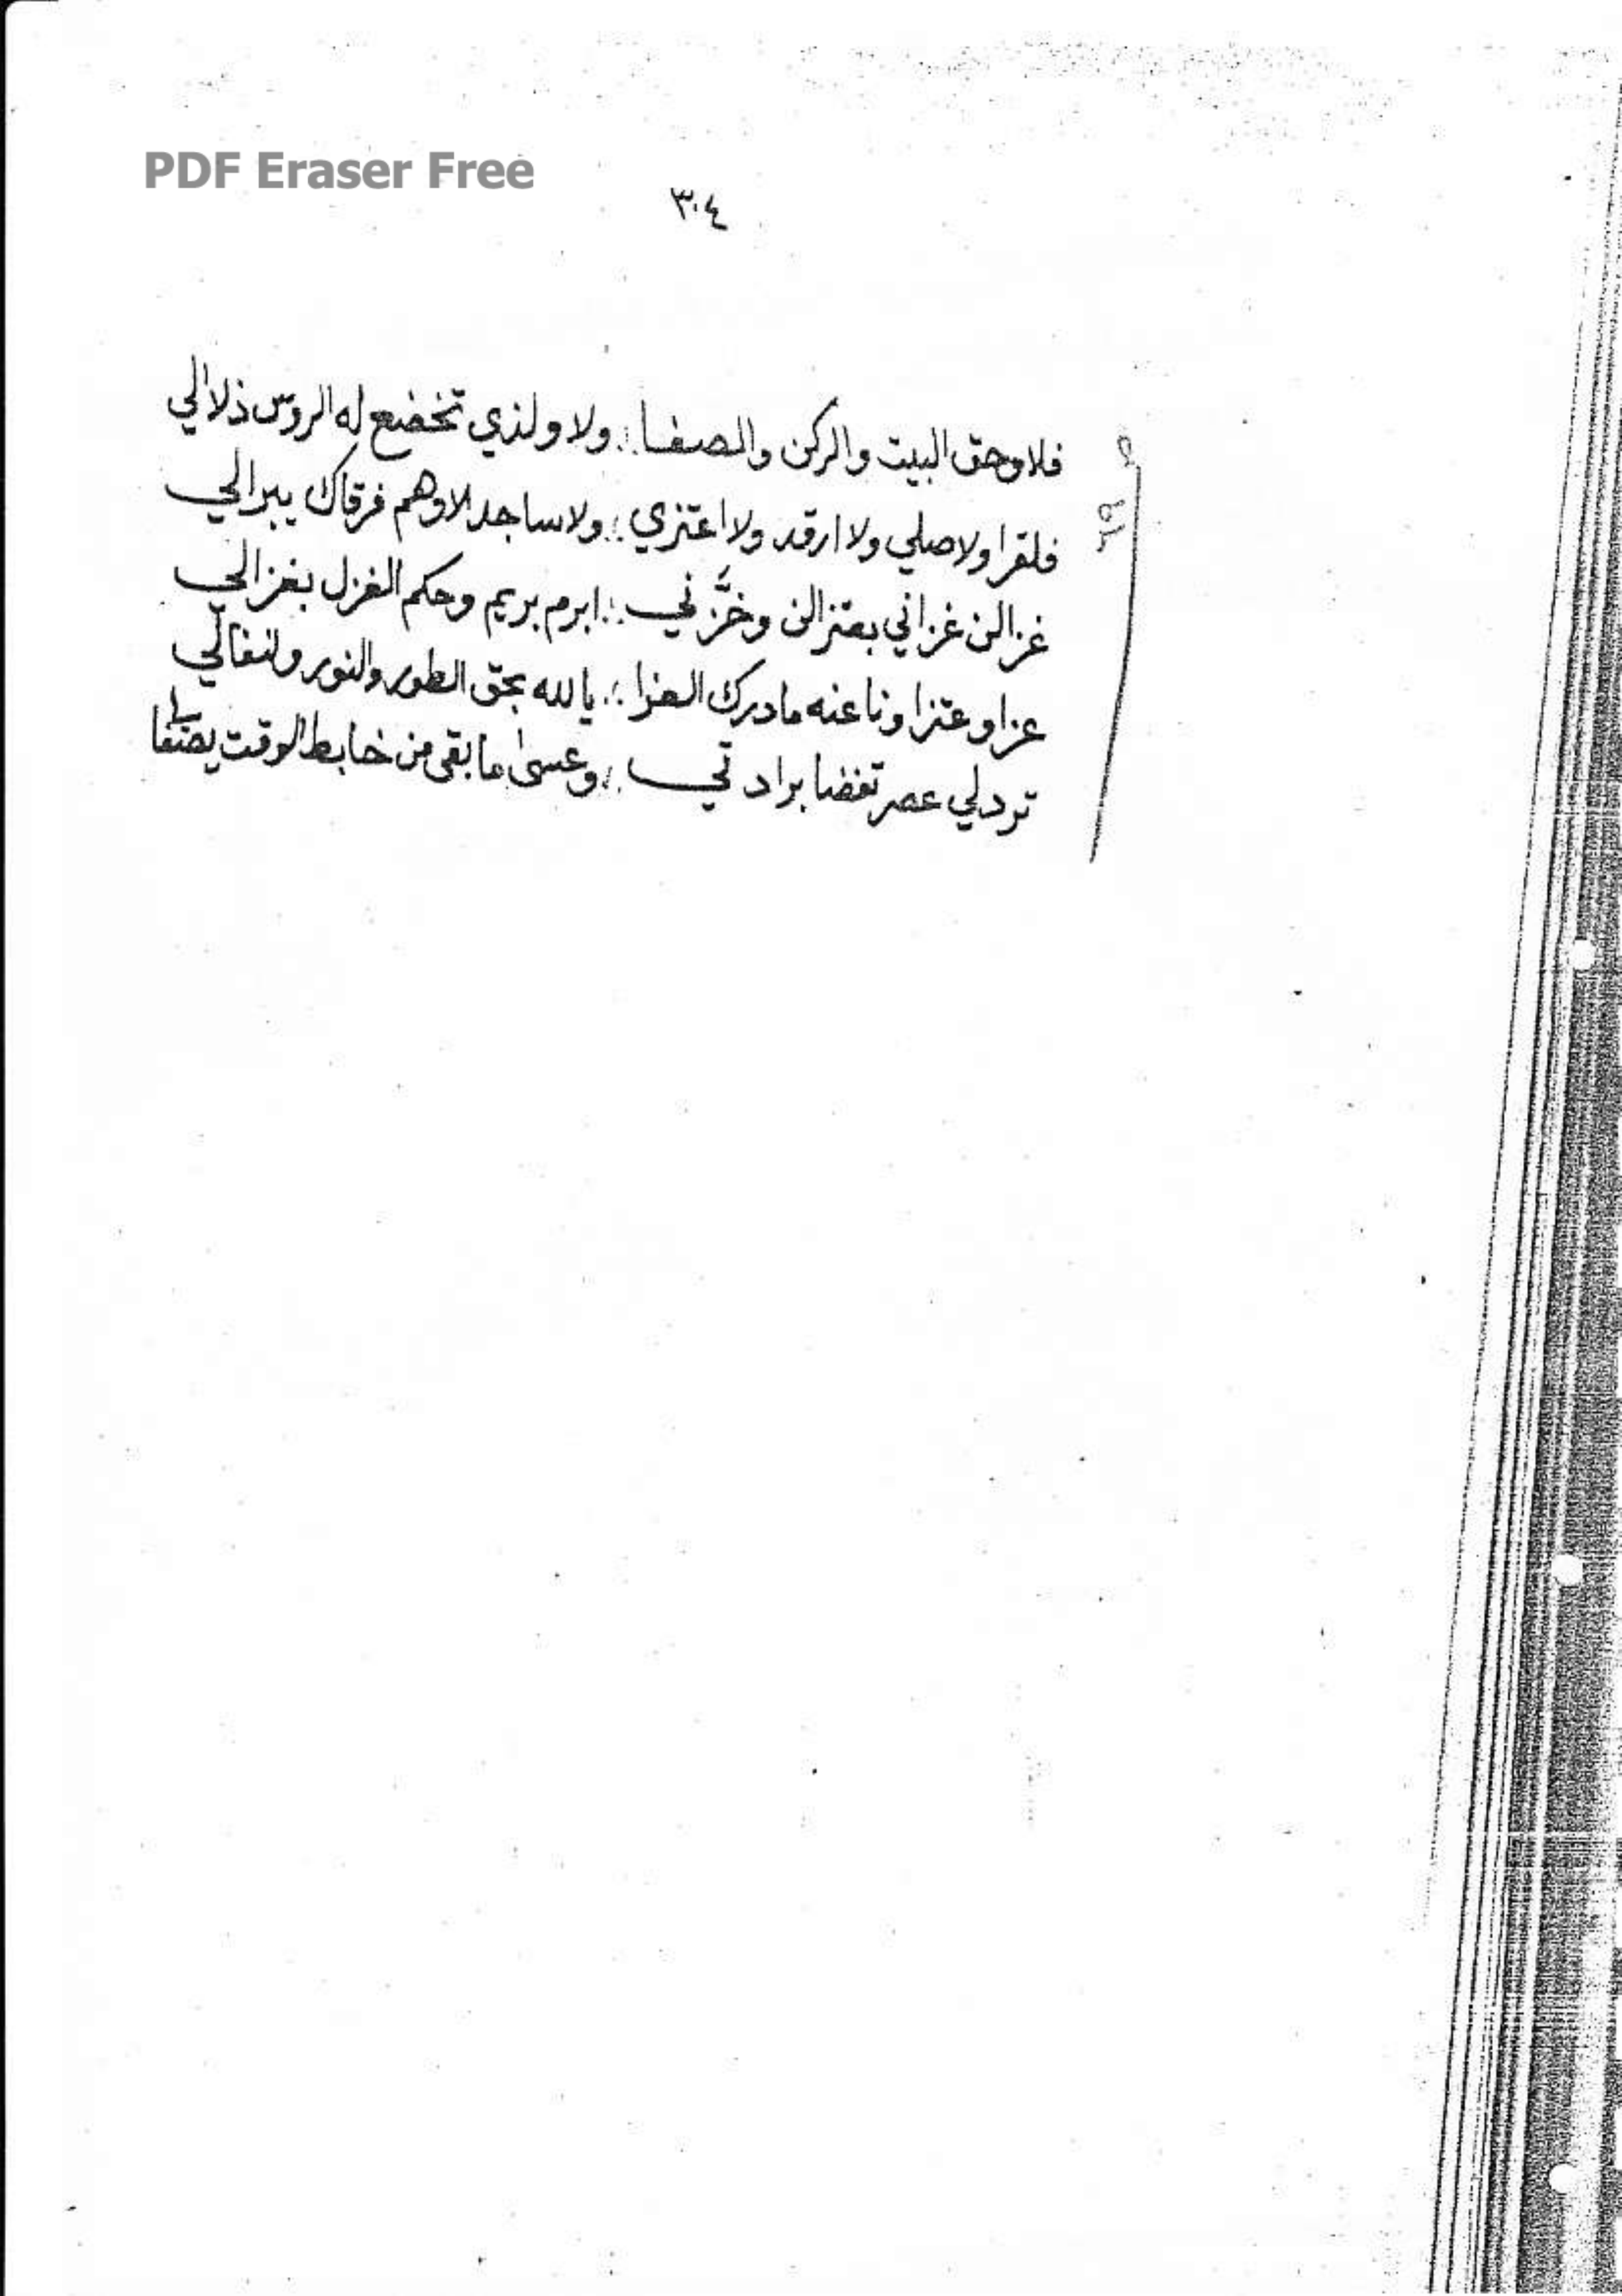 PDF Eraser Free
٣٠٤
فلا وحق البيت والركن والصفا ؛ ولا ولذي تخضع له الروس ذلالي
فلقرا ولا صلي ولا ارقد ولا اعتزي ؛ ولا ساجد الا وهم فرقاك يبرالي
غزالن غزاني بعتزالن وخزَّني ؛ ابرم بريم وحكم الغزل بغزالي
عزا وعتزا ونا عنه مادرك العزا ؛ يا الله بحق الطور والنور ولنفالي
تردلي عصر تغضا برادتي ؛ وعسى ما بقى من خابط الوقت يصتفا